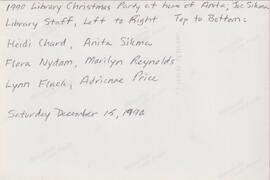 1990 Library Christmas Party at home of Anita, Joe Sikma
Library Staff, Left to Right Top to Bottom:
Heidi Chard, Anita Sikma
Flora Nydam, Marilyn Reynolds
Lynn Flach, Adrienne Price
Saturday December 15, 1990